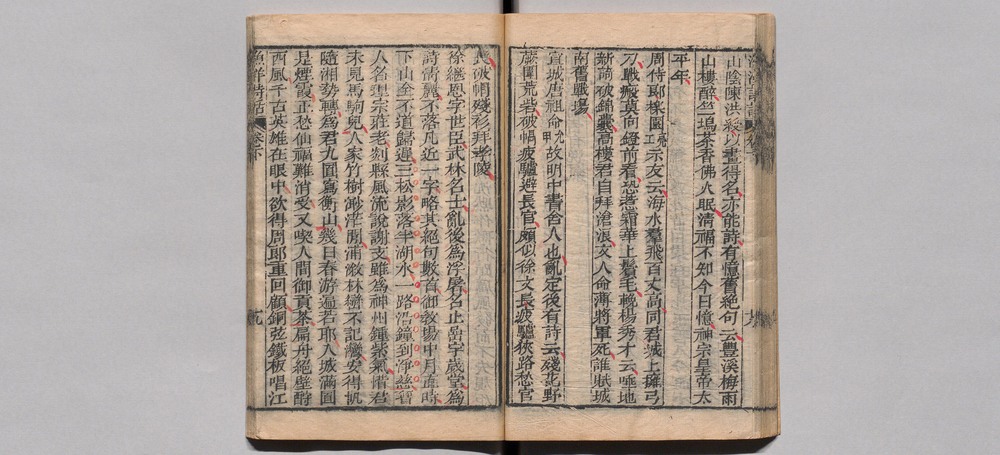 山陰陳洪綬以畫得名亦能詩有憶舊絕句云豐溪梅雨
山樓醉竺塢茶香佛火眠清福不知今日憶神宗皇帝太
平年
周侍郎櫟園亮工示友云海水羣飛百丈高同君城上擁弓
刀戰瘢莫向鐙前看恐惹霜華上鬢毛輓楊秀才云唾地
新詩破錦囊高樓君自拜滄浪文人命薄將軍死誰賦城
南舊戰場
宣城唐祖命允甲故明中書舍人也亂定後有詩云殘花野
蕨圍荒砦破帽疲驢避長官頗似徐文長疲驢狹路愁官
長破帽殘衫拜孝陵
徐繼恩字世臣武林名士亂後為浮屠名止嵒字歲堂為
詩清麗不落凡近一字略其絕句數首御教場中月直時
下山途不道歸遲三松影落半湖水一路浩鐘到淨慈
人名理宗莊老剡縣風流說謝支雖為神州鍾紫氣惜君
未見馬駒兒人家竹樹渺茫間浦溆林巒不記灣安得帆
隨湘勢轉為君九面寫衡山幾日春游遍若耶入城滿面
是煙霞正愁仙福難消受又喫人間御貢茶扁舟絕壁
西風千古英雄在眼中欲得周郎重回顧銅弦鐵板唱江
漁洋詩話
卷下